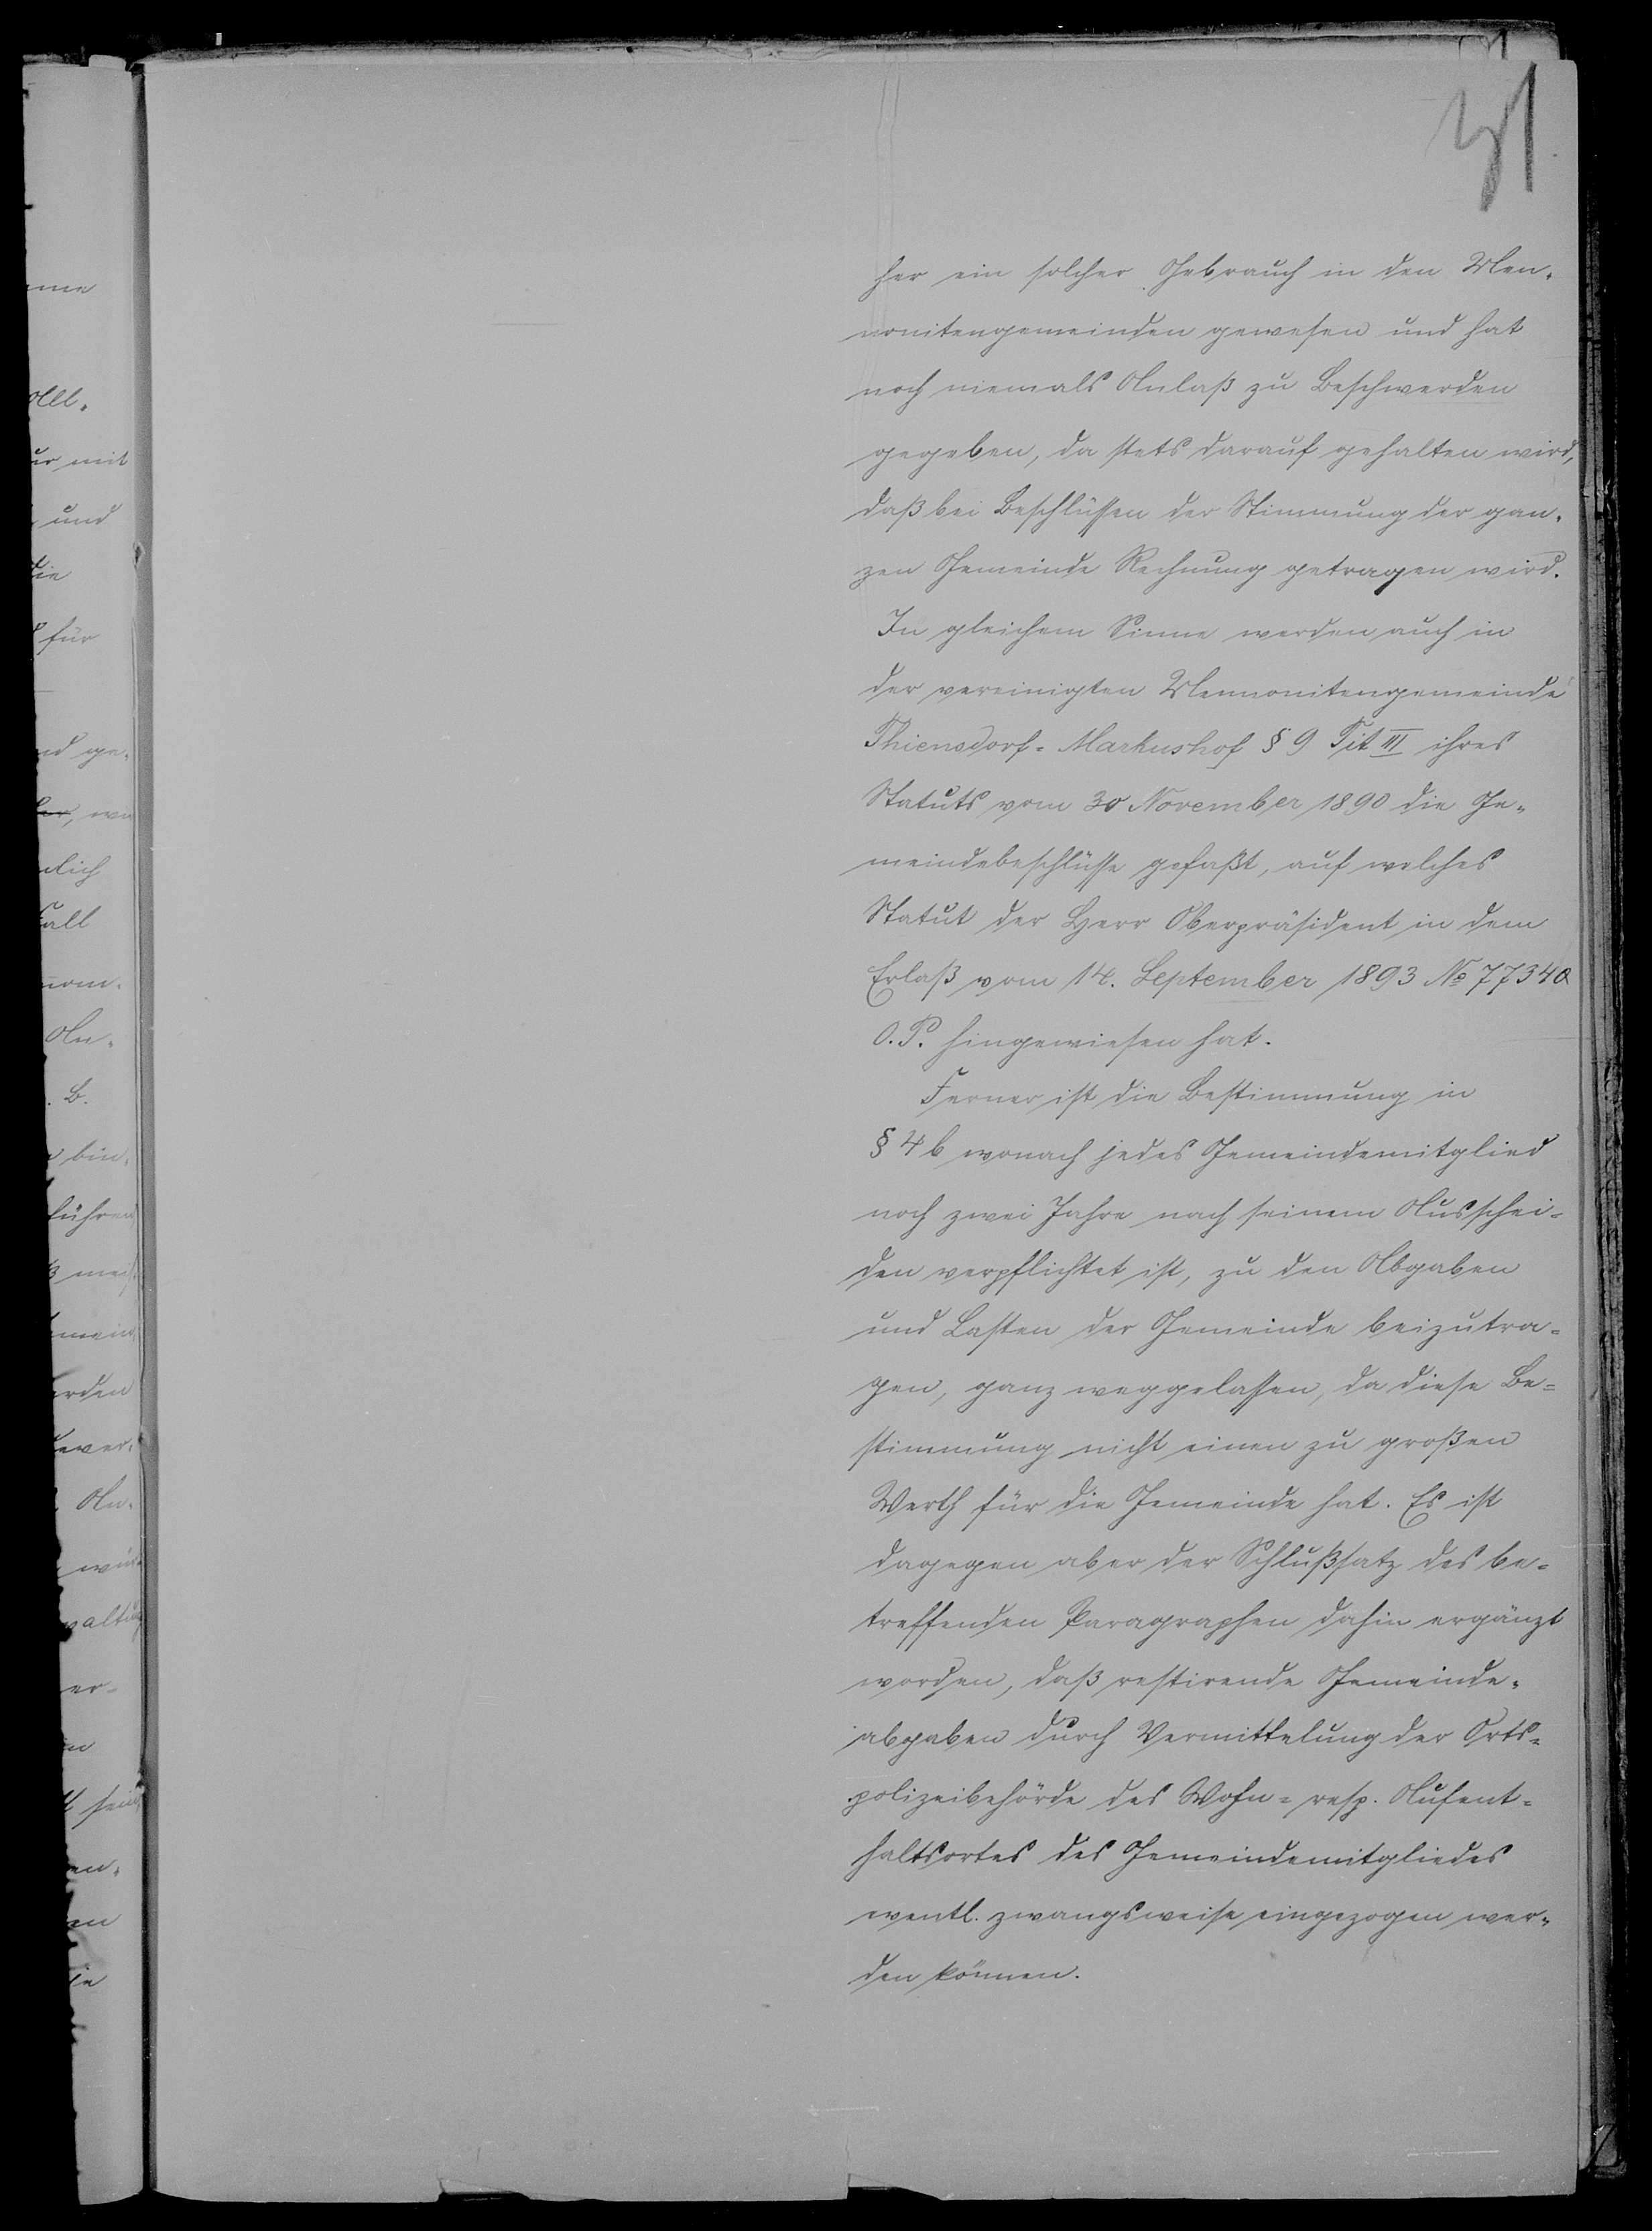 31
her ein solcher Gebrauch in den Men-
nonitengemeinden gewesen und hat
noch niemals Anlaß zu Beschwerden
gegeben, da stets darauf gehalten wird,
daß bei Beschlüssen der Stimmung der gan-
zen Gemeinde Rechnung getragen wird.
In gleichem Sinne werden auch in
der vereinigten Mennonitengemeinde
Thiensdorf-Markushof § 9 Tit III ihres
Statuts vom 30 November 1890 die Ge-
meindebeschlüsse gefaßt, auf welches
Statut der Herr Oberpräsident in dem
Erlaß vom 14. September 1893 No 7734
O.P. hingewiesen hat.
Ferner ist die Bestimmung in
§ 4 b wonach jedes Gemeindemitglied
noch zwei Jahre nach seinem Ausschei-
den verpflichtet ist, zu den Abgaben
und Lasten der Gemeinde beizutra-
gen, ganz weggelassen, da diese Be-
stimmung nicht einen zu großen
Werth für die Gemeinde hat. Es ist
dagegen aber der Schlußsatz des be-
treffenden Paragraphen dahin ergänzt
worden, daß restirende Gemeinde-
abgaben durch Vermittelung der Orts-
polizeibehörde des Wohn- resp. Aufent-
haltsortes des Gemeindemitgliedes
eventl. zwangsweise eingezogen wer-
den können.